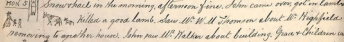 MON 5 Snow shack in the morning, afternoon fine. John came over, got in lambs
killed a good lamb. Saw Mr W. W. Thomson about Mr Highfield
removing to another house. John saw Mr Walker about building. Grace & Children ca